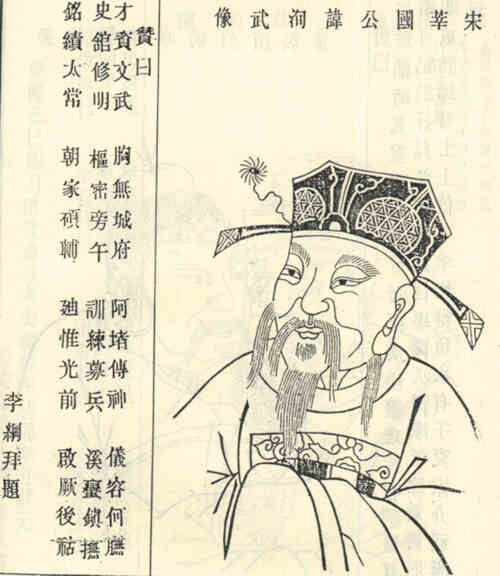 宋莘國公諱洵武像
贊曰
才賁文武 胸無城府 阿堵傳神 儀容何膴
史舘修明 樞密旁午 訓練募兵 溪蠻鎮撫
銘績太常 朝家碩輔 廸惟光前 啟厥後祜
李綱拜題